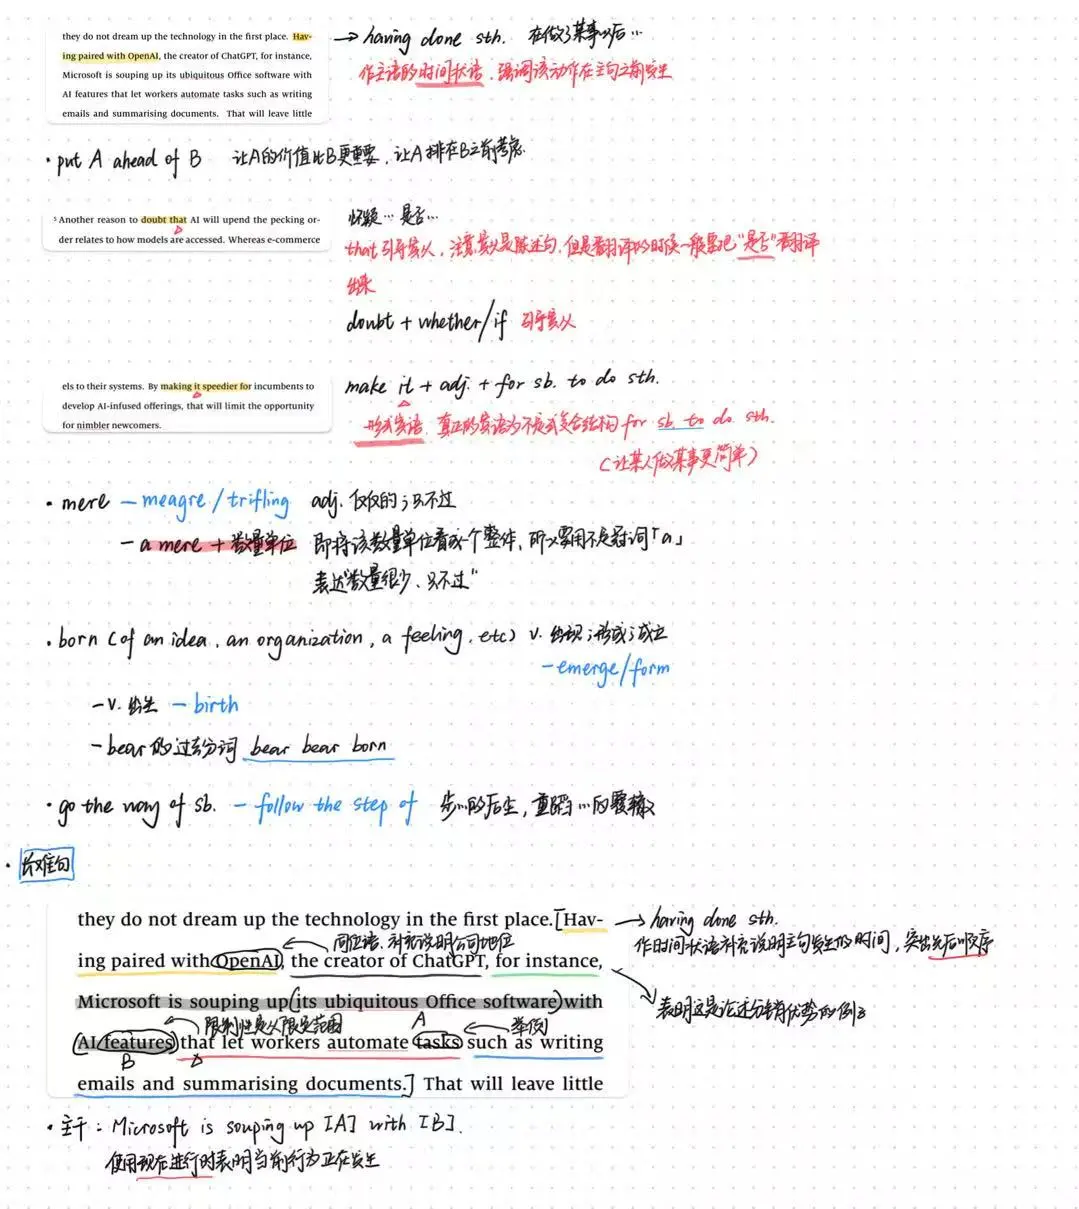 they do not dream up the technology in the first place. Hav-
ing paired with OpenAI, the creator of ChatGPT, for instance,
Microsoft is souping up its ubiquitous Office software with
AI features that let workers automate tasks such as writing
emails and summarising documents. That will leave little
→ having done sth. 在做了某事以后…
作主语的时间状语，强调该动作在主句之前发生
· put A ahead of B 让A的价值比B更重要，让A排在B之前考虑
5 Another reason to doubt that AI will upend the pecking or-
der relates to how models are accessed. Whereas e-commerce
怀疑…是否…
that引导宾从，注意宾从是陈述句，但是翻译的时候一般要把"是否"翻译
出来
doubt + whether/if 引导宾从
els to their systems. By making it speedier for incumbents to
develop AI-infused offerings, that will limit the opportunity
for nimbler newcomers.
make it + adj. + for sb. to do sth.
形式宾语，真正的宾语为不定式复合结构 for sb. to do sth.
(让某人做某事更简单)
· mere — meagre / trifling adj. 仅仅的；只不过
— a mere + 数量单位 即将该数量单位看成一个整体，所以要用不定冠词「a」
表达"数量很少、只不过"
· born (of an idea, an organization, a feeling, etc) v. 出现；形成；成立
— emerge/form
— v. 出生 — birth
— bear 的过去分词 bear bear born
· go the way of sb. — follow the step of 步…的后尘，重蹈…的覆辙
· 长难句
they do not dream up the technology in the first place. [Hav-
→ having done sth.
同位语，补充说明公司地位
作时间状语补充说明主句发生的时间，突出先后顺序
ing paired with OpenAI, the creator of ChatGPT, for instance,
Microsoft is souping up (its ubiquitous Office software) with
表明这是论述分销优势的例子
限制性定从限定范围 A 举例
AI features) that let workers automate tasks such as writing
B
emails and summarising documents.] That will leave little
· 主干：Microsoft is souping up [A] with [B].
使用现在进行时表明当前行为正在发生